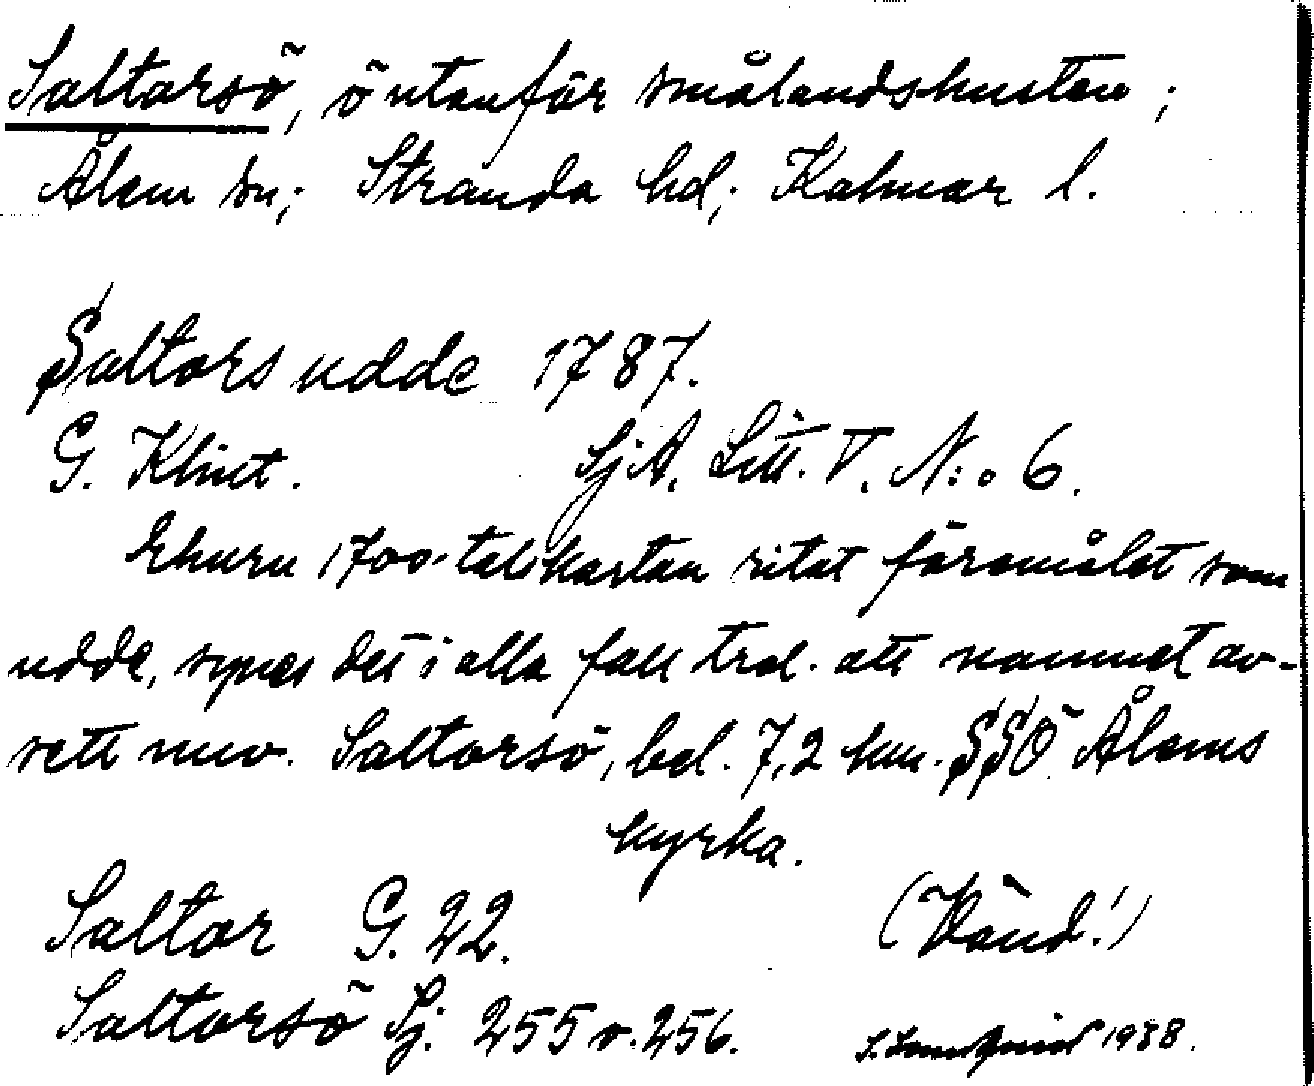 Saltorsö, ö utanför smålandskusten;
Ålem sn; Stranda hd; Kalmar l.
Saltors udde 1787.
G. Klint. SjA. Litt. V. N:o 6.
Ehuru 1700-talskartan ritat föremålet som
udde, synes det i alla fall trol. att namnet av-
sett nuv. Saltorsö, bel. 7,2 km. SSÖ Ålems
kyrka.
Saltor G. 22. (Vänd!)
Saltorsö Sj. 255 o. 256. 1938.